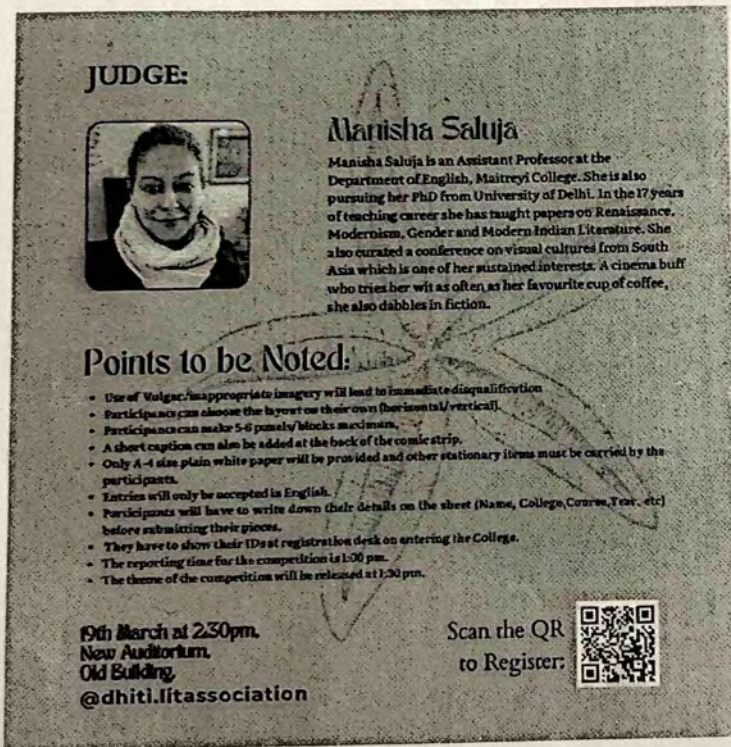 JUDGE:
Manisha Saluja
Manisha Saluja is an Assistant Professor at the
Department of English, Maitreyi College. She is also
pursuing her PhD from University of Delhi. In the 17 years
of teaching career she has taught papers on Renaissance,
Modernism, Gender and Modern Indian Literature. She
also curated a conference on visual cultures from South
Asia which is one of her sustained interests. A cinema buff
who tries her wit as often as her favourite cup of coffee,
she also dabbles in fiction.
Points to be Noted:
• Use of Vulgar/inappropriate imagery will lead to immediate disqualification
• Participants can choose the layout on their own (horizontal/vertical).
• Participants can make 5-6 panels/blocks maximum.
• A short caption can also be added at the back of the comic strip.
• Only A-4 size plain white paper will be provided and other stationary items must be carried by the
participants.
• Entries will only be accepted in English.
• Participants will have to write down their details on the sheet (Name, College,Course,Year, etc)
before submitting their pieces.
• They have to show their IDs at registration desk on entering the College.
• The reporting time for the competition is 1:00 pm.
• The theme of the competition will be released at 1:30 pm.
19th March at 2:30pm,
New Auditorium,
Old Building,
@dhiti.litassociation
Scan the QR
to Register: